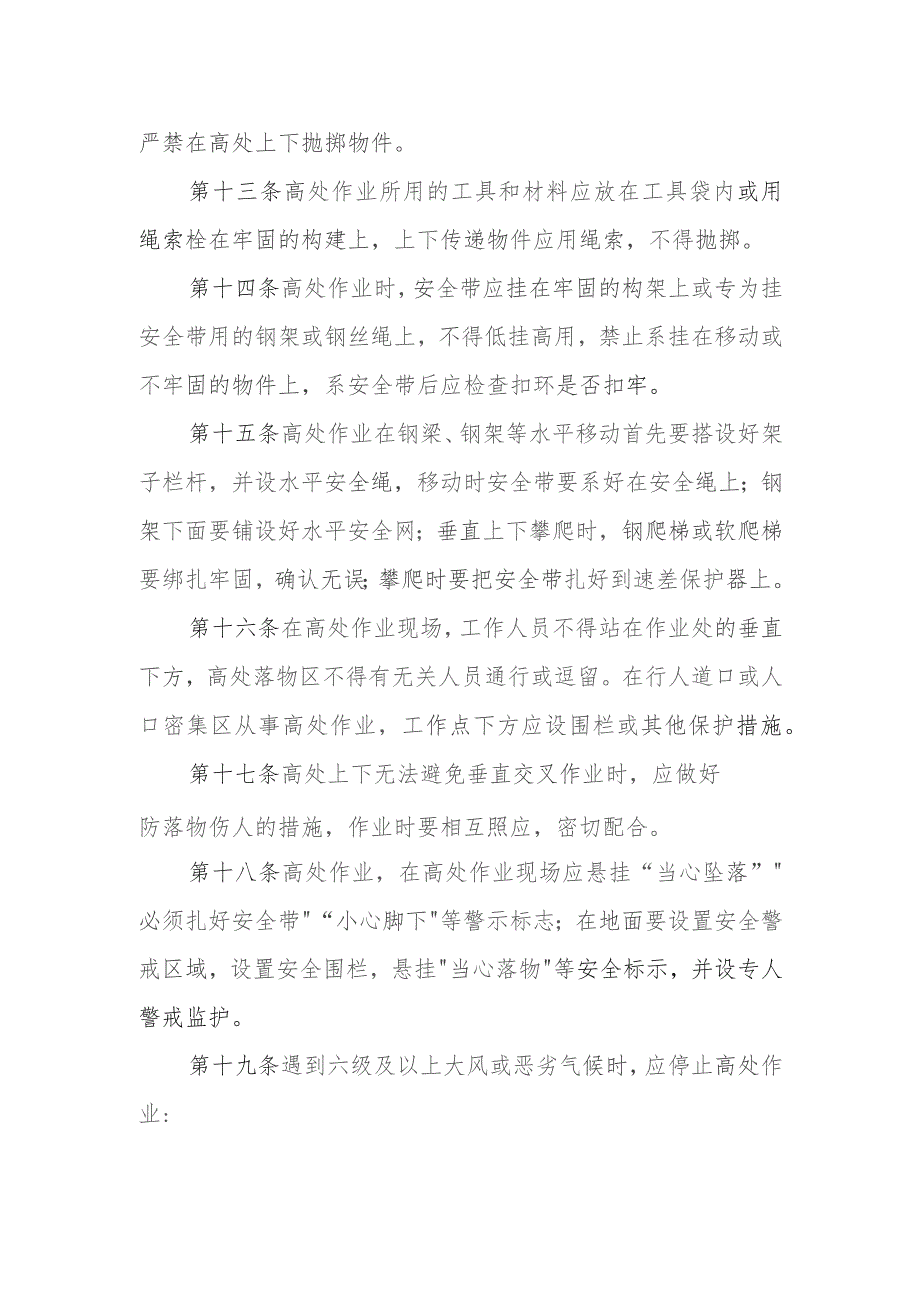 严禁在高处上下抛掷物件。
第十三条高处作业所用的工具和材料应放在工具袋内或用
绳索栓在牢固的构建上，上下传递物件应用绳索，不得抛掷。
第十四条高处作业时，安全带应挂在牢固的构架上或专为挂
安全带用的钢架或钢丝绳上，不得低挂高用，禁止系挂在移动或
不牢固的物件上，系安全带后应检查扣环是否扣牢。
第十五条高处作业在钢梁、钢架等水平移动首先要搭设好架
子栏杆，并设水平安全绳，移动时安全带要系好在安全绳上；钢
架下面要铺设好水平安全网；垂直上下攀爬时，钢爬梯或软爬梯
要绑扎牢固，确认无误；攀爬时要把安全带扎好到速差保护器上。
第十六条在高处作业现场，工作人员不得站在作业处的垂直
下方，高处落物区不得有无关人员通行或逗留。在行人道口或人
口密集区从事高处作业，工作点下方应设围栏或其他保护措施。
第十七条高处上下无法避免垂直交叉作业时，应做好
防落物伤人的措施，作业时要相互照应，密切配合。
第十八条高处作业，在高处作业现场应悬挂“当心坠落”"
必须扎好安全带"“小心脚下"等警示标志；在地面要设置安全警
戒区域，设置安全围栏，悬挂"当心落物"等安全标示，并设专人
警戒监护。
第十九条遇到六级及以上大风或恶劣气候时，应停止高处作
业：